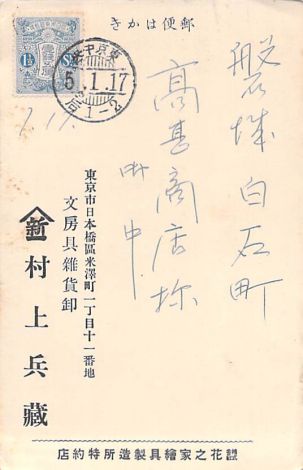 郵便はかき
1½ Sn
東京中央
5.1.17
后1-2
1.17.
磐城白石町
高甚商店
御中
東京市日本橋區米澤町一丁目十一番地
文房具雜貨卸
村上兵藏
花之家繪具製造所特約店